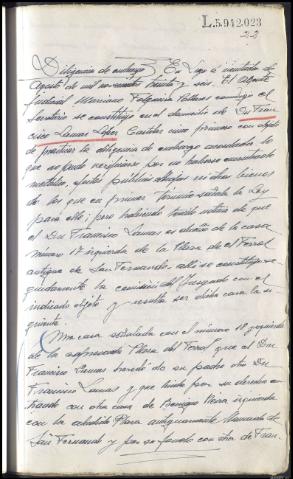 L.5.942.023
22
Diligencia de embargo. En Lugo a veintidos de
Agosto de mil novecientos treinta y seis. El Agente
Judicial Mariano Folgueira conmigo el
Secretario se constituyo en el domicilio de Dn Fran
cisco Lamas López Castelar uno primero con objeto
de practicar la diligencia de embargo acordada lo
que no pudo verificarse por no haberse encontrado
metalico, efectos publicos alhajas ni otros bienes
de los que en primer termino señala la Ley
para ello; pero habiendo tenido noticia de que
el Dn Francisco Lamas es dueño de la casa
numero 18 izquierda de la Plaza de el Ferrol
antigua de San Fernando, alli se constituyo se
guidamente la comision del Juzgado con el
indicado objeto y resulta ser dicha casa la si
guiente:
Una casa señalada con el número 18 izquierda
de la expresada Plaza del Ferrol que el Dn
Francisco Lamas heredó de su padre otro Dn
Francisco Lamas y que linda por su derecha en
trando con otra casa de Benigno Neira izquierda
con la citada Plaza antiguamente llamada de
San Fernando y por su fondo con otra de Fran.